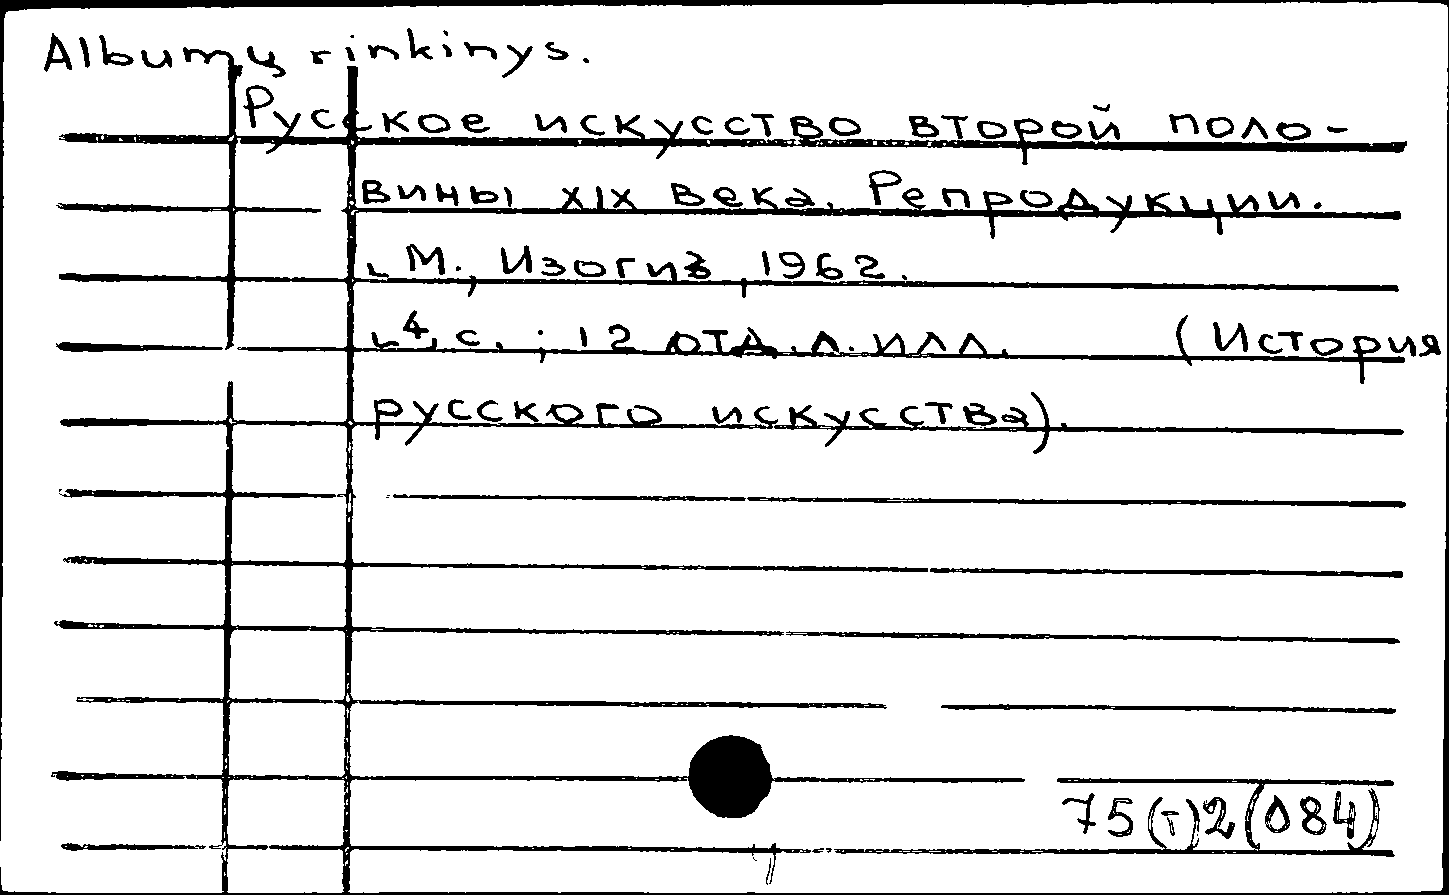 Albumų rinkinys.
Русское искусство второй поло-
вины XIX века. Репродукции.
М., Изогиз, 1962.
4, с. ; 12 отд.л.илл. (История
русского искусства).
75(т)2(084)